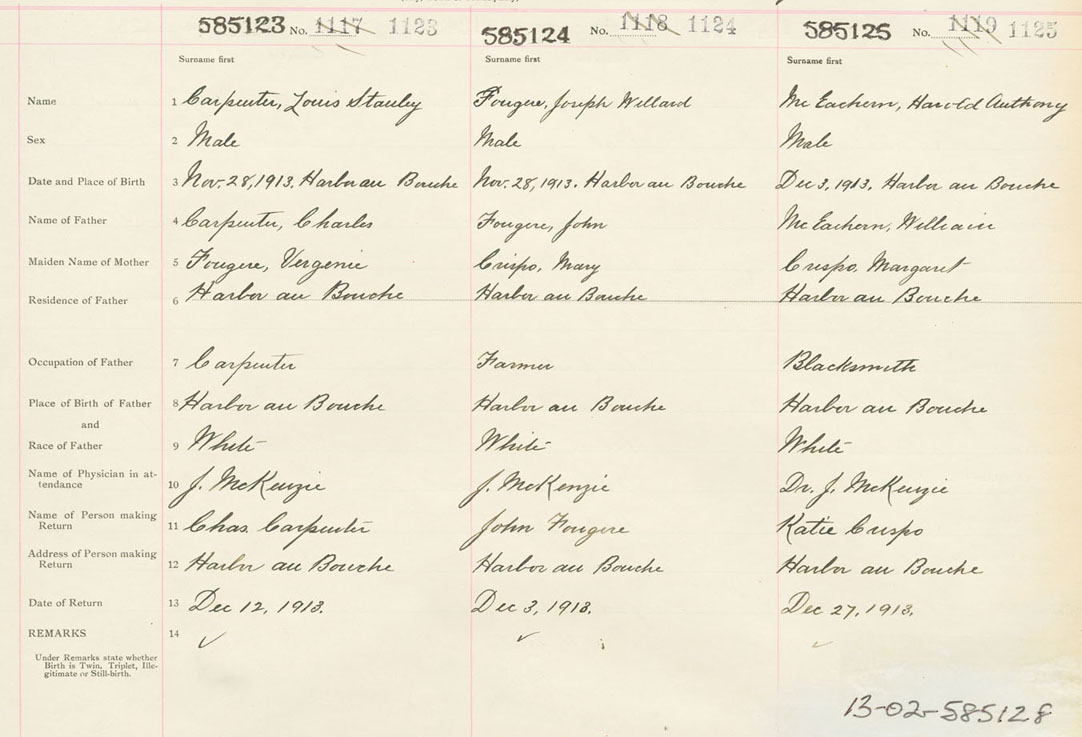 585123 No. 1117 1123 585124 No. 1118 1124 585125 No. 1119 1125
Surname first Surname first Surname first
Name 1 Carpenter, Louis Stanley Fougere, Joseph Willard Mc Eachern, Harold Anthony
Sex 2 Male Male Male
Date and Place of Birth 3 Nov. 28, 1913. Harbor au Bouche Nov. 28, 1913. Harbor au Bouche Dec 3, 1913. Harbor au Bouche
Name of Father 4 Carpenter, Charles Fougere, John Mc Eachern, William
Maiden Name of Mother 5 Fougere, Vergenie Crispo, Mary Crispo, Margaret
Residence of Father 6 Harbor au Bouche Harbor au Bouche Harbor au Bouche
Occupation of Father 7 Carpenter Farmer Blacksmith
Place of Birth of Father 8 Harbor au Bouche Harbor au Bouche Harbor au Bouche
and
Race of Father 9 White White White
Name of Physician in at-
tendance 10 J. McKenzie J. McKenzie Dr. J. McKenzie
Name of Person making
Return 11 Chas. Carpenter John Fougere Katie Crispo
Address of Person making
Return 12 Harbor au Bouche Harbor au Bouche Harbor au Bouche
Date of Return 13 Dec 12, 1913. Dec 3, 1913. Dec 27, 1913.
REMARKS 14
Under Remarks state whether
Birth is Twin, Triplet, Ille-
gitimate or Still-birth.
13-02-585128